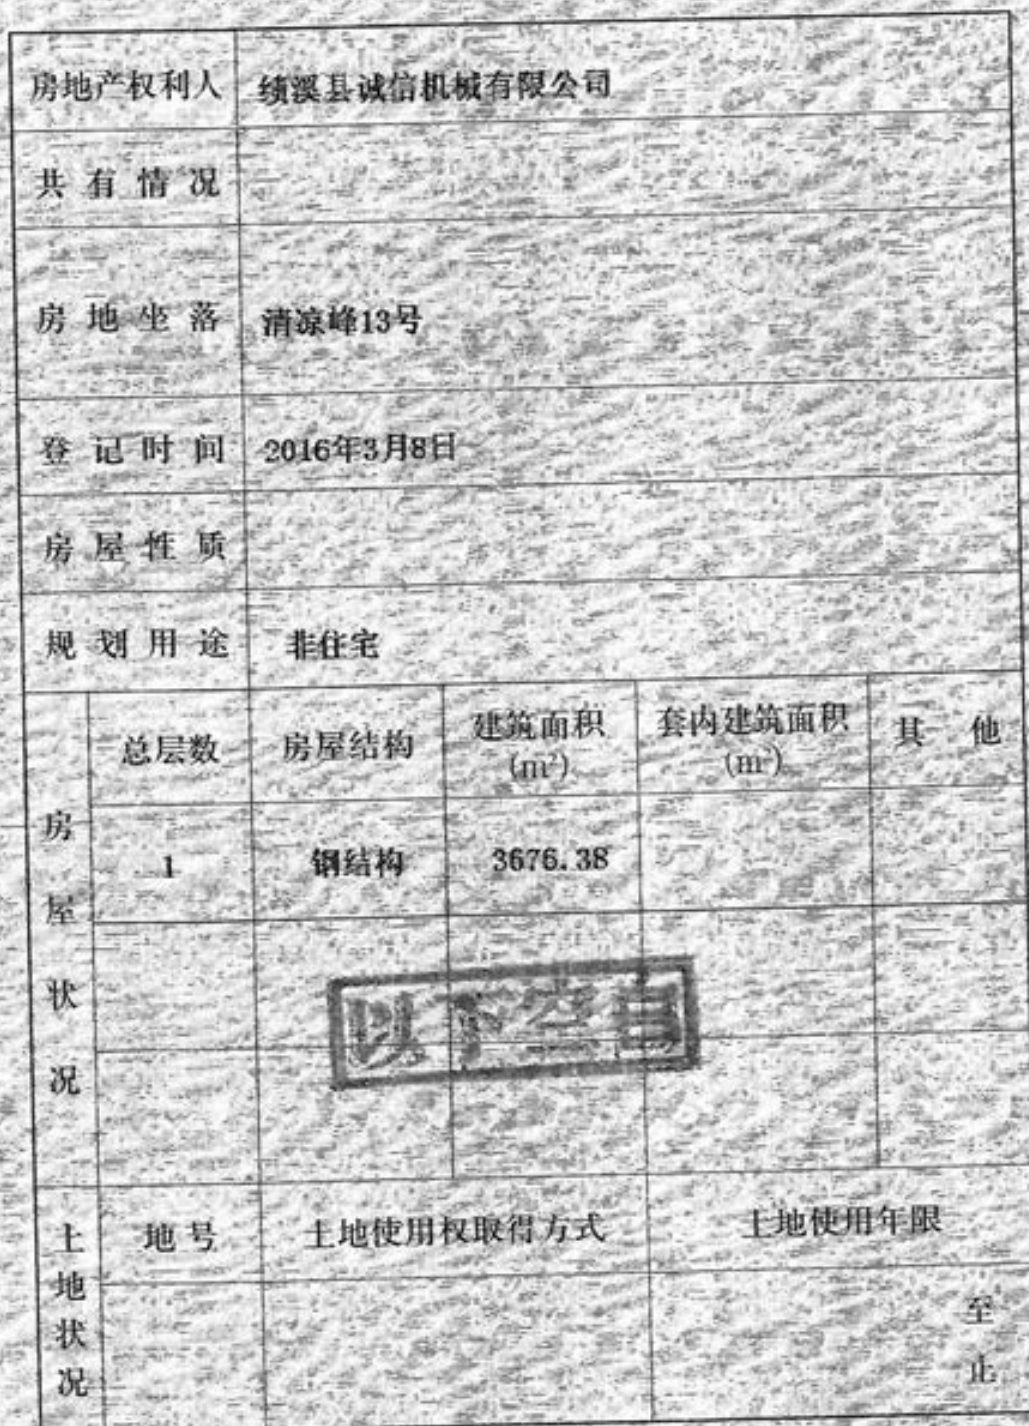 房地产权利人 绩溪县诚信机械有限公司
共有情况
房地坐落 清凉峰13号
登记时间 2016年3月8日
房屋性质
规划用途 非住宅
房屋状况
总层数 房屋结构 建筑面积(m²) 套内建筑面积(m²) 其他
1 钢结构 3676.38
以下空白
土地状况
地号 土地使用权取得方式 土地使用年限
至
止